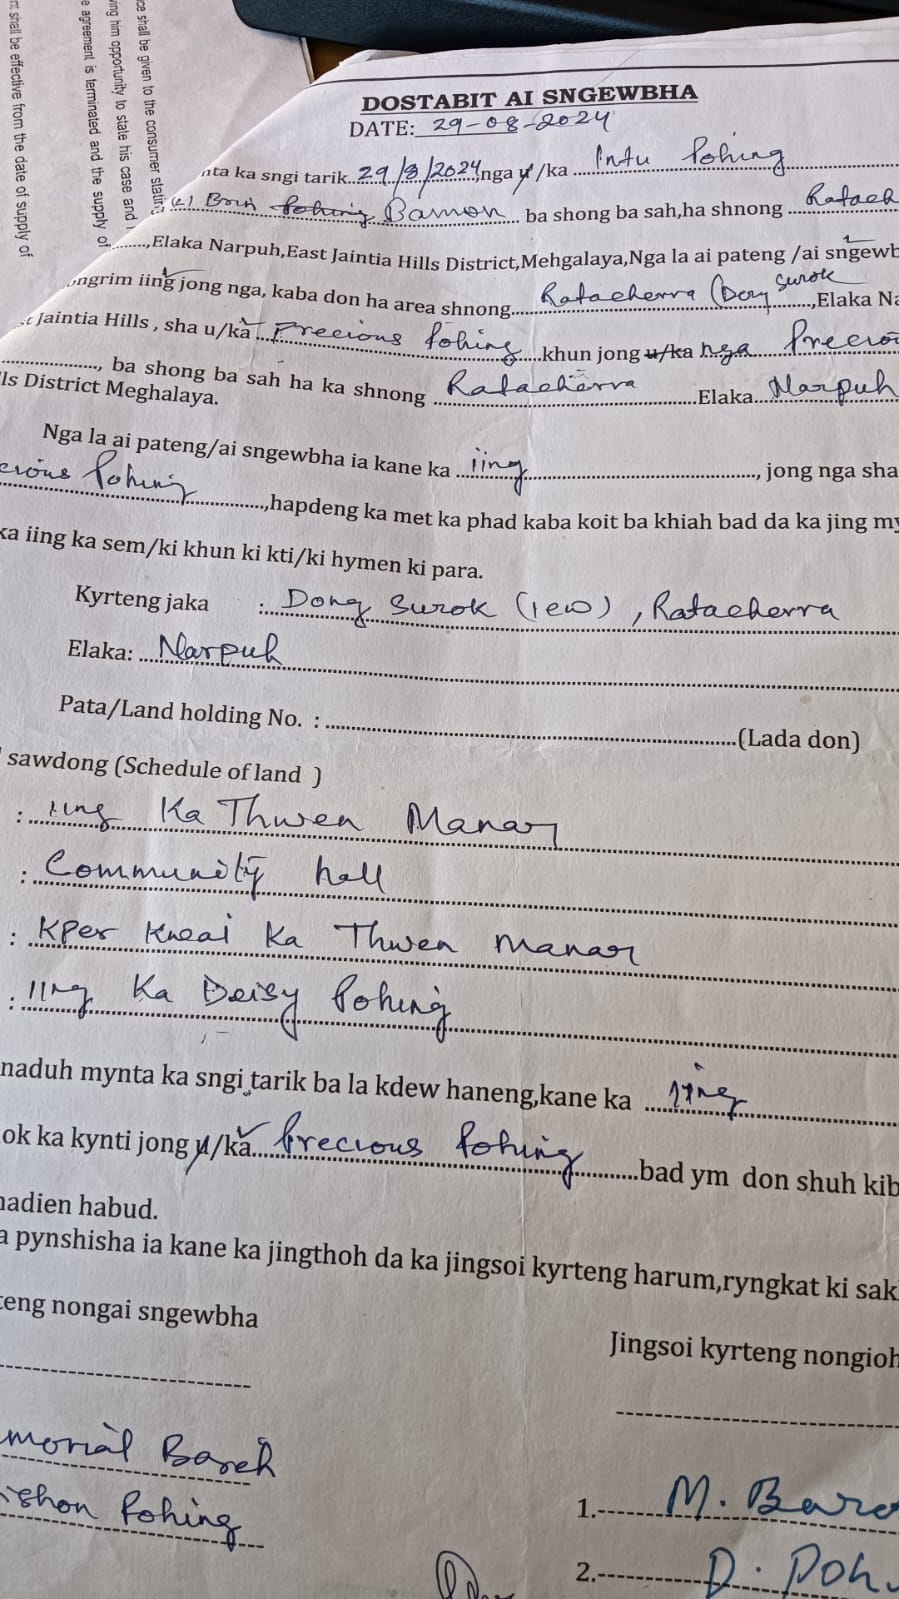 nt shall be effective from the date of supply of
e agreement is terminated and the supply of
ing him opportunity to state his case and
ce shall be given to the consumer statin
DOSTABIT AI SNGEWBHA
DATE: 29-08-2024
nta ka sngi tarik..29/8/2024,nga u/ka Intu Pohing
(L) Bamon ba shong ba sah,ha shnong Ratach
,Elaka Narpuh,East Jaintia Hills District,Mehgalaya,Nga la ai pateng /ai sngewb
ongrim iing jong nga, kaba don ha area shnong Ratacherra (Dong Surok ,Elaka Na
t Jaintia Hills , sha u/ka Precious Pohing khun jong u/ka nga Precio
, ba shong ba sah ha ka shnong Ratacherra Elaka Narpuh
lls District Meghalaya.
Nga la ai pateng/ai sngewbha ia kane ka iing , jong nga sha
ecious Pohing ,hapdeng ka met ka phad kaba koit ba khiah bad da ka jing my
ka iing ka sem/ki khun ki kti/ki hymen ki para.
Kyrteng jaka : Dong Surok (iew), Ratacherra
Elaka: Narpuh
Pata/Land holding No. : (Lada don)
sawdong (Schedule of land )
: iing Ka Thwen Manar
: Community hall
: Kper Kwai Ka Thwen Manar
: iing Ka Deisy Pohing
naduh mynta ka sngi tarik ba la kdew haneng,kane ka iing
ok ka kynti jong u/ka Precious Pohing bad ym don shuh kib
hadien habud.
a pynshisha ia kane ka jingthoh da ka jingsoi kyrteng harum,ryngkat ki sak
teng nongai sngewbha
Jingsoi kyrteng nongioh
morial Bareh
ishon Pohing
1. M. Bare
2. D. Poh